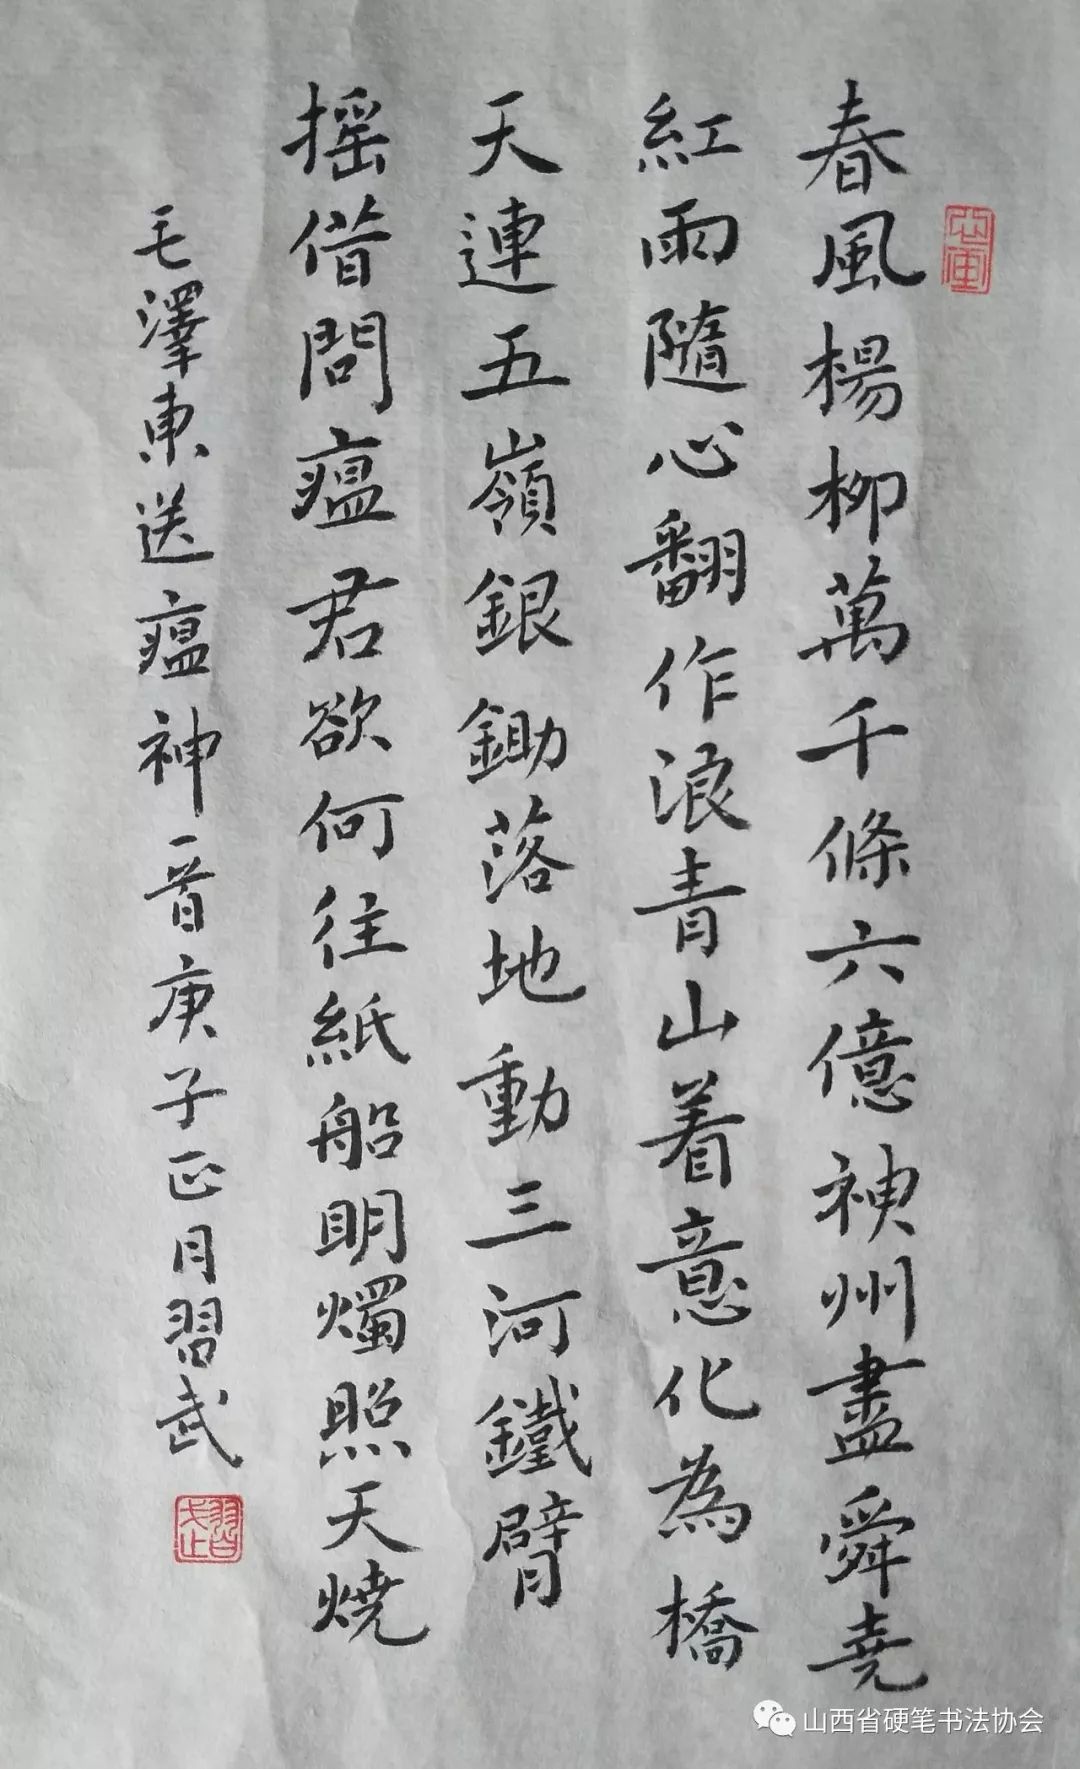 春風楊柳萬千條六億神州盡舜堯
紅雨隨心翻作浪青山着意化為橋
天連五嶺銀鋤落地動三河鐵臂
摇借問瘟君欲何往紙船明燭照天燒
毛澤東送瘟神一首庚子正月習武
習武
山西省硬笔书法协会